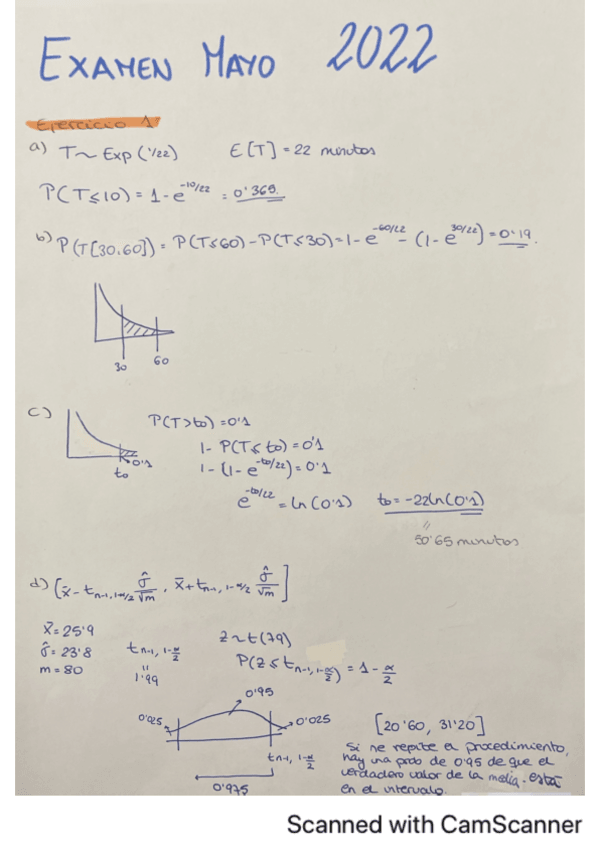 EXAMEN MAYO 2022
Ejercicio 1
a) T ~ Exp (1/22) E[T] = 22 minutos
P(T ≤ 10) = 1 - e^{-10/22} = 0'365.
b) P(T[30,60]) = P(T≤60) - P(T≤30) = 1 - e^{-60/22} - (1 - e^{30/22}) = 0'19.
30 60
c) P(T > to) = 0'1
0'1
to
1 - P(T ≤ to) = 0'1
1 - (1 - e^{-to/22}) = 0'1
e^{-to/22} = ln(0'1) to = -22ln(0'1)
=
50'65 minutos
d) [x̄ - t_{n-1, 1-α/2} σ̂/√m , x̄ + t_{n-1, 1-α/2} σ̂/√m]
x̄ = 25'9
σ̂ = 23'8
m = 80
t_{n-1, 1-α/2}
=
1'99
z ~ t(79)
P(z ≤ t_{n-1, 1-α/2}) = 1 - α/2
0'95
0'025 0'025
t_{n-1, 1-α/2}
0'975
[20'60, 31'20]
Si se repite el procedimiento,
hay una prob de 0'95 de que el
verdadero valor de la media está
en el intervalo.
Scanned with CamScanner